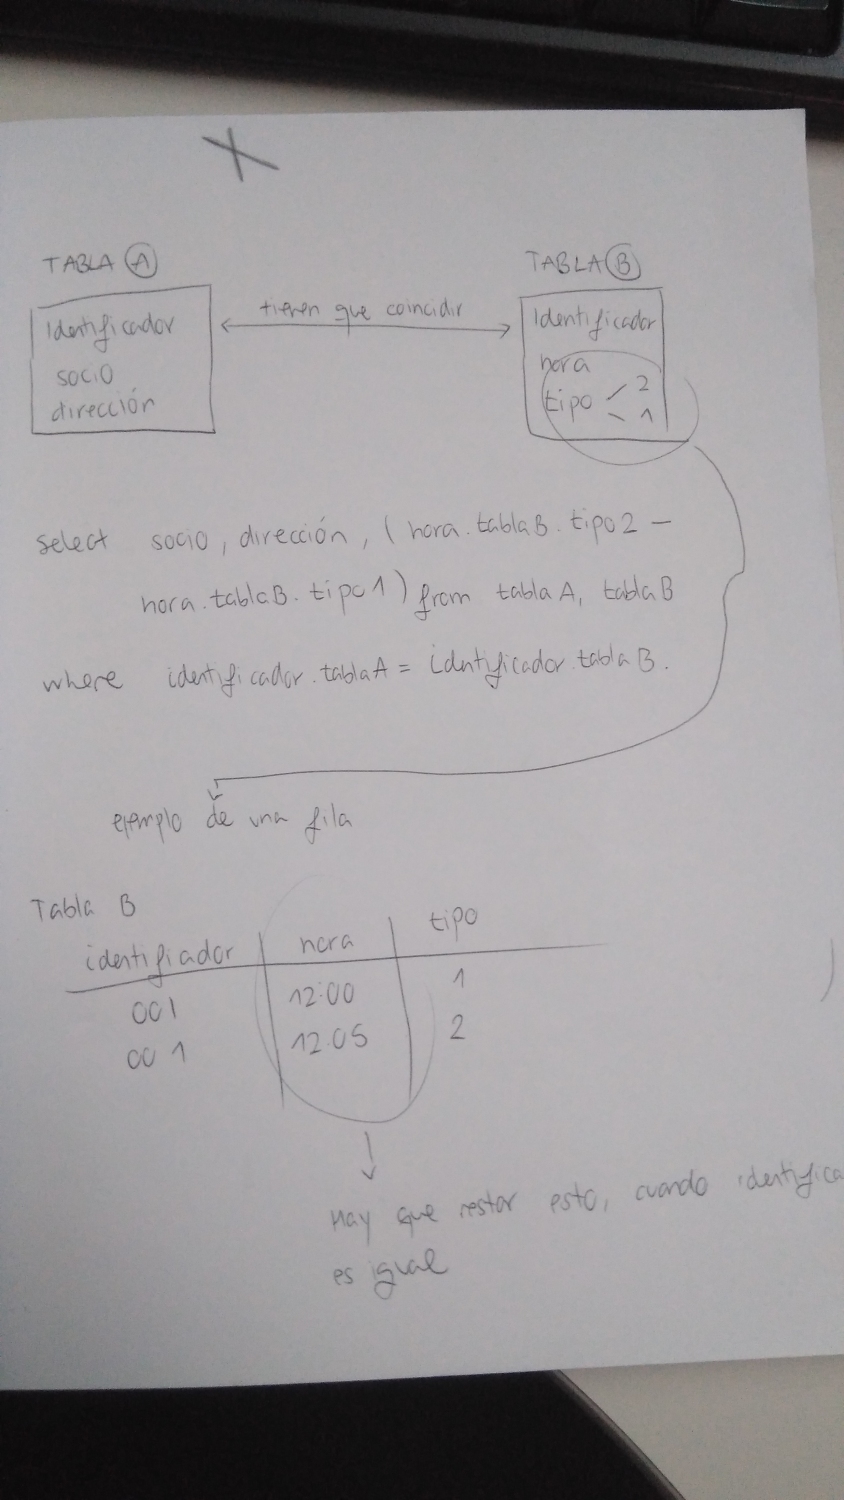 X
TABLA A
TABLA B
tienen que coincidir
Identificador
socio
dirección
Identificador
hora
tipo 2
1
select socio, dirección, (hora.tablaB.tipo2 -
hora.tablaB.tipo1) from tablaA, tablaB
where identificador.tablaA = identificador.tablaB.
ejemplo de una fila
Tabla B
identifiador hora tipo
001 12:00 1
001 12.05 2
Hay que restar esto, cuando identifica
es igual